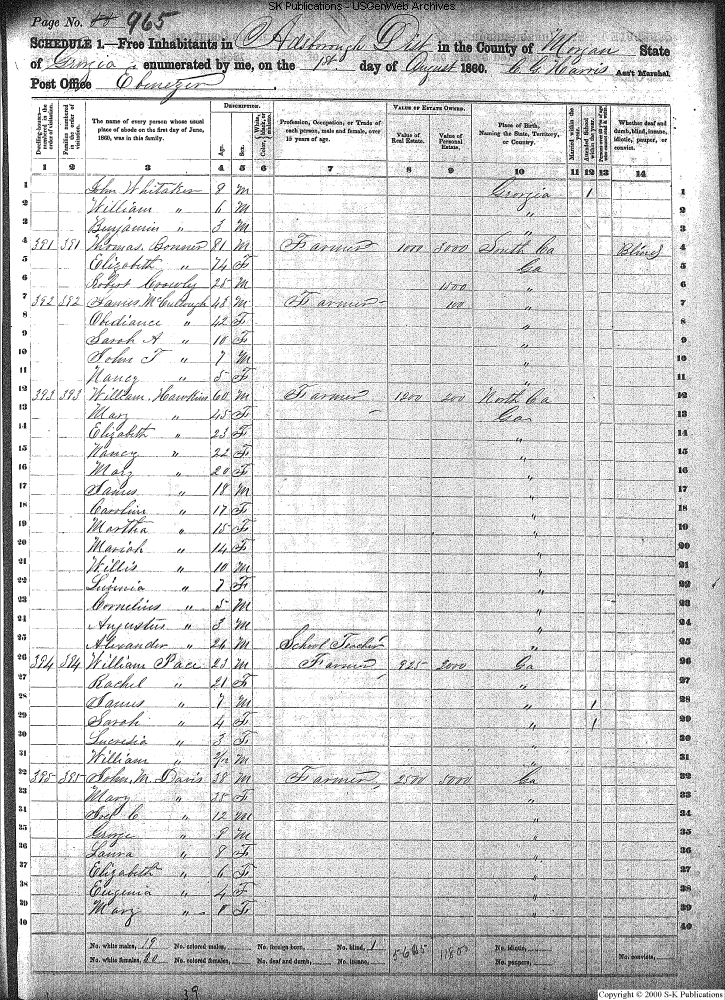 SK Publications - USGenWeb Archives
Page No. 965
SCHEDULE 1.—Free Inhabitants in Adsborough Dist in the County of Morgan State
of Georgia enumerated by me, on the 1st day of August 1860. C G Harris Ass't Marshal.
Post Office Ebenezer
Dwelling-houses—numbered in the order of visitation.
Families numbered in the order of visitation.
The name of every person whose usual place of abode on the first day of June, 1860, was in this family.
DESCRIPTION.
Age.
Sex.
Color, White, black, or mulatto.
Profession, Occupation, or Trade of each person, male and female, over 15 years of age.
VALUE OF ESTATE OWNED.
Value of Real Estate.
Value of Personal Estate.
Place of Birth, Naming the State, Territory, or Country.
Married within the year.
Attended School within the year.
Whether deaf and dumb, blind, insane, idiotic, pauper, or convict.
1 2 3 4 5 6 7 8 9 10 11 12 13 14
1 John Whitaker 8 M Georgia 1 1
2 William " 6 M " 2
3 Benjamin " 3 M " 3
4 391 381 Thomas Bonner 81 M Farmer 1000 3000 South Ca Blind 4
5 Elizabeth " 74 F Ga 5
6 Robert Crowly 25 M 1500 " 6
7 392 382 James McCullough 43 M Farmer 100 " 7
8 Obediance " 42 F " 8
9 Sarah A " 10 F " 9
10 John T " 7 M " 10
11 Nancy " 5 F " 11
12 393 383 William Hawkins 60 M Farmer 1200 200 North Ca 12
13 Mary " 45 F Ga 13
14 Elizabeth " 23 F " 14
15 Nancy " 22 F " 15
16 Mary " 20 F " 16
17 James " 18 M " 17
18 Caroline " 17 F " 18
19 Martha " 15 F " 19
20 Mariah " 14 F " 20
21 Willis " 10 M " 21
22 " 7 F " 22
23 Cornelius " 5 M " 23
24 Augustus " 3 M " 24
25 Alexander " 24 M School Teacher " 25
26 394 384 William Pace 23 M Farmer 925 2000 Ga 26
27 Rachel " 21 F " 27
28 James " 7 M " 1 28
29 Sarah " 4 F " 1 29
30 Lucresia " 3 F " 30
31 William " /12 M " 31
32 395 385 John M. Davis 38 M Farmer 2500 5000 Ga 32
33 Mary " 35 F " 33
34 Joel C " 12 M " 34
35 George " 8 M " 35
36 Laura " 8 F " 36
37 Elizabeth " 6 F " 37
38 Eugenia " 4 F " 38
39 Mary " 1 F " 39
40 40
No. white males, 19 No. colored males, No. foreign born, No. blind, 1 5625 11800 No. idiotic,
No. white females, 20 No. colored females, No. deaf and dumb, No. insane, No. paupers, No. convicts,
39
Copyright © 2000 S-K Publications